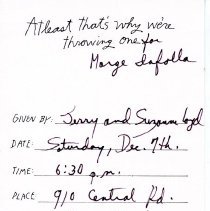 Atleast that's why we're
throwing one for
Marge
GIVEN BY: Jerry and Suzanne
DATE: Saturday, Dec. 7th.
TIME: 6:30 p.m.
PLACE 910 Central Rd.